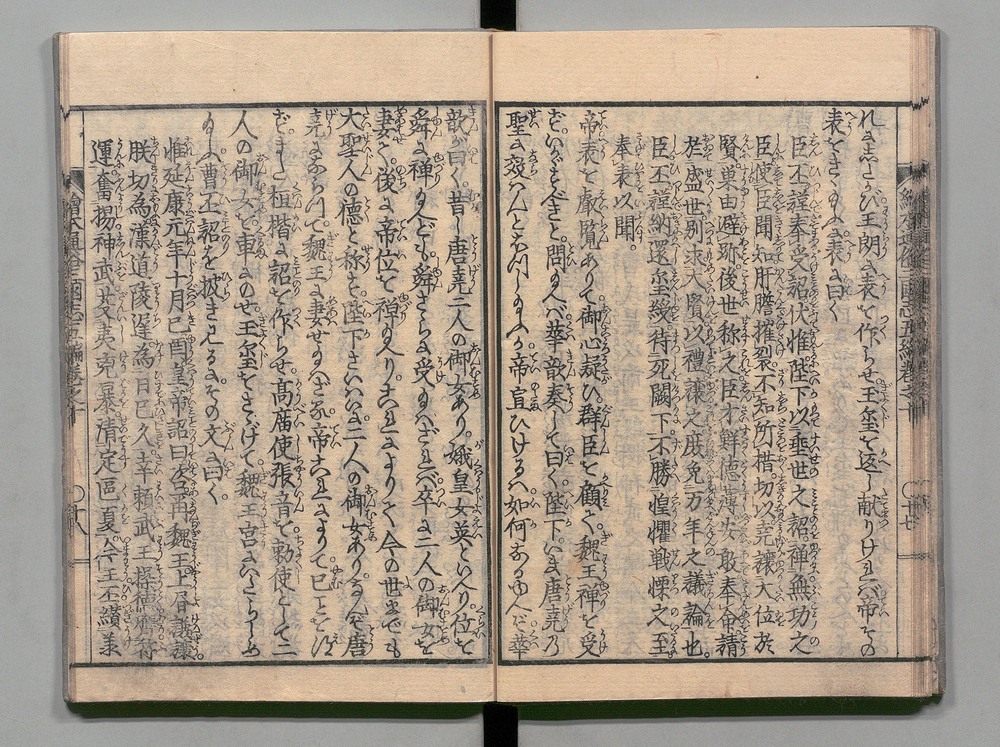 れにしたがひ王朗に表を作らせ王璽を返し献りければ帝その
表をきこしめすに表に曰く
臣丕謹奉受詔伏惟陛下以垂世之詔禅無功之
臣使臣聞知肝膽摧裂不知所措切以堯讓大位於
賢巣由避跡後世称之臣才鮮德薄安敢奉命請
於盛世別求大賢以禮讓之庶免万年之議論也
臣丕謹納還璽綬待死闕下不勝惶懼戦慄之至
奉表以聞
帝表を叡覧ありて御心疑ひ群臣を顧て魏王禅を受
ずいかゞすべきと問玉へば華歆奏して曰く陛下いま唐堯乃
聖に效はんとおぼしめすか帝宣ひけるハ如何なるゆへぞ華
歆が曰く昔し唐堯二人の御女あり娥皇女英といへり位を
舜に禅り玉へども舜さらに受玉はざれバ卒に二人の御女を
妻せて後に帝位を禅れりこれによりて今の世までも
大聖人の德と称す陛下さいはひに二人の御女あるなんぞ唐
堯にならつて魏王に妻せ玉はざる帝これによりて已ことを得
ずまた桓楷に詔を作らせ高廣使張音を勅使として二
人の御女を車にのせ王璽をさゝげて魏王宮にいたらしめ
玉ふ曹丕詔を披き見るにその文に曰く
惟延康元年十月己酉皇帝詔曰咨尓再魏王上書謙讓
朕切為漢道陵遲為日已久幸頼武王操德膺符
運奮揚神武芟夷兇暴清定區夏今王丕纉兼
繪本通俗三國志五編巻之十